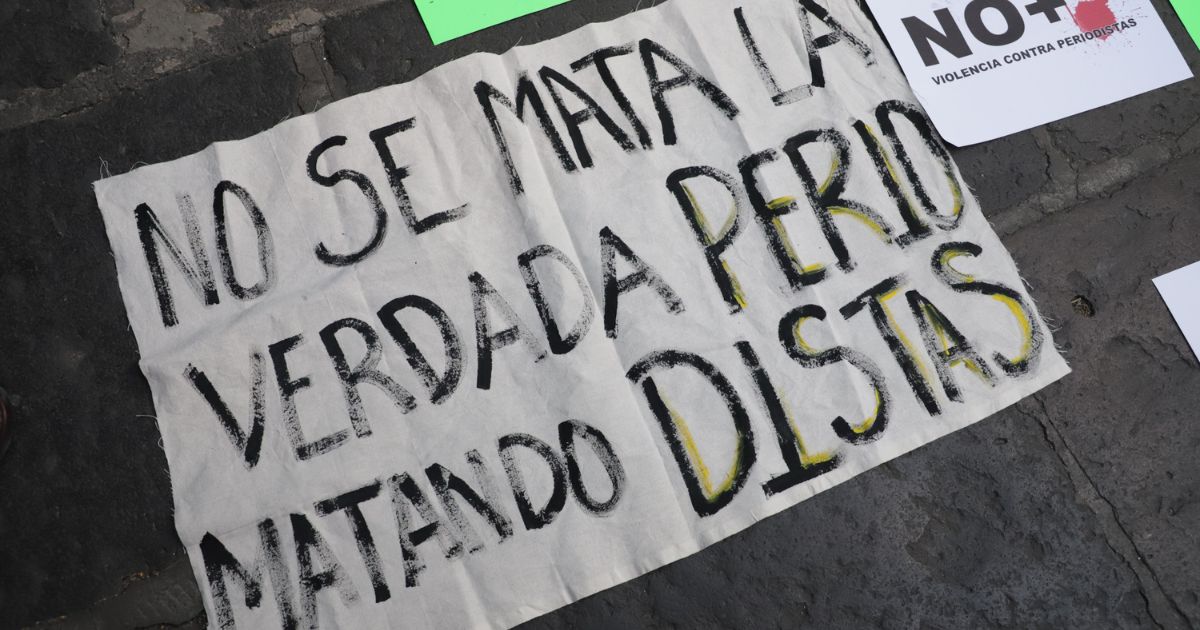 NO SE MATA LA
VERDADA PERIO
MATANDO DISTAS
NO+
VIOLENCIA CONTRA PERIODISTAS